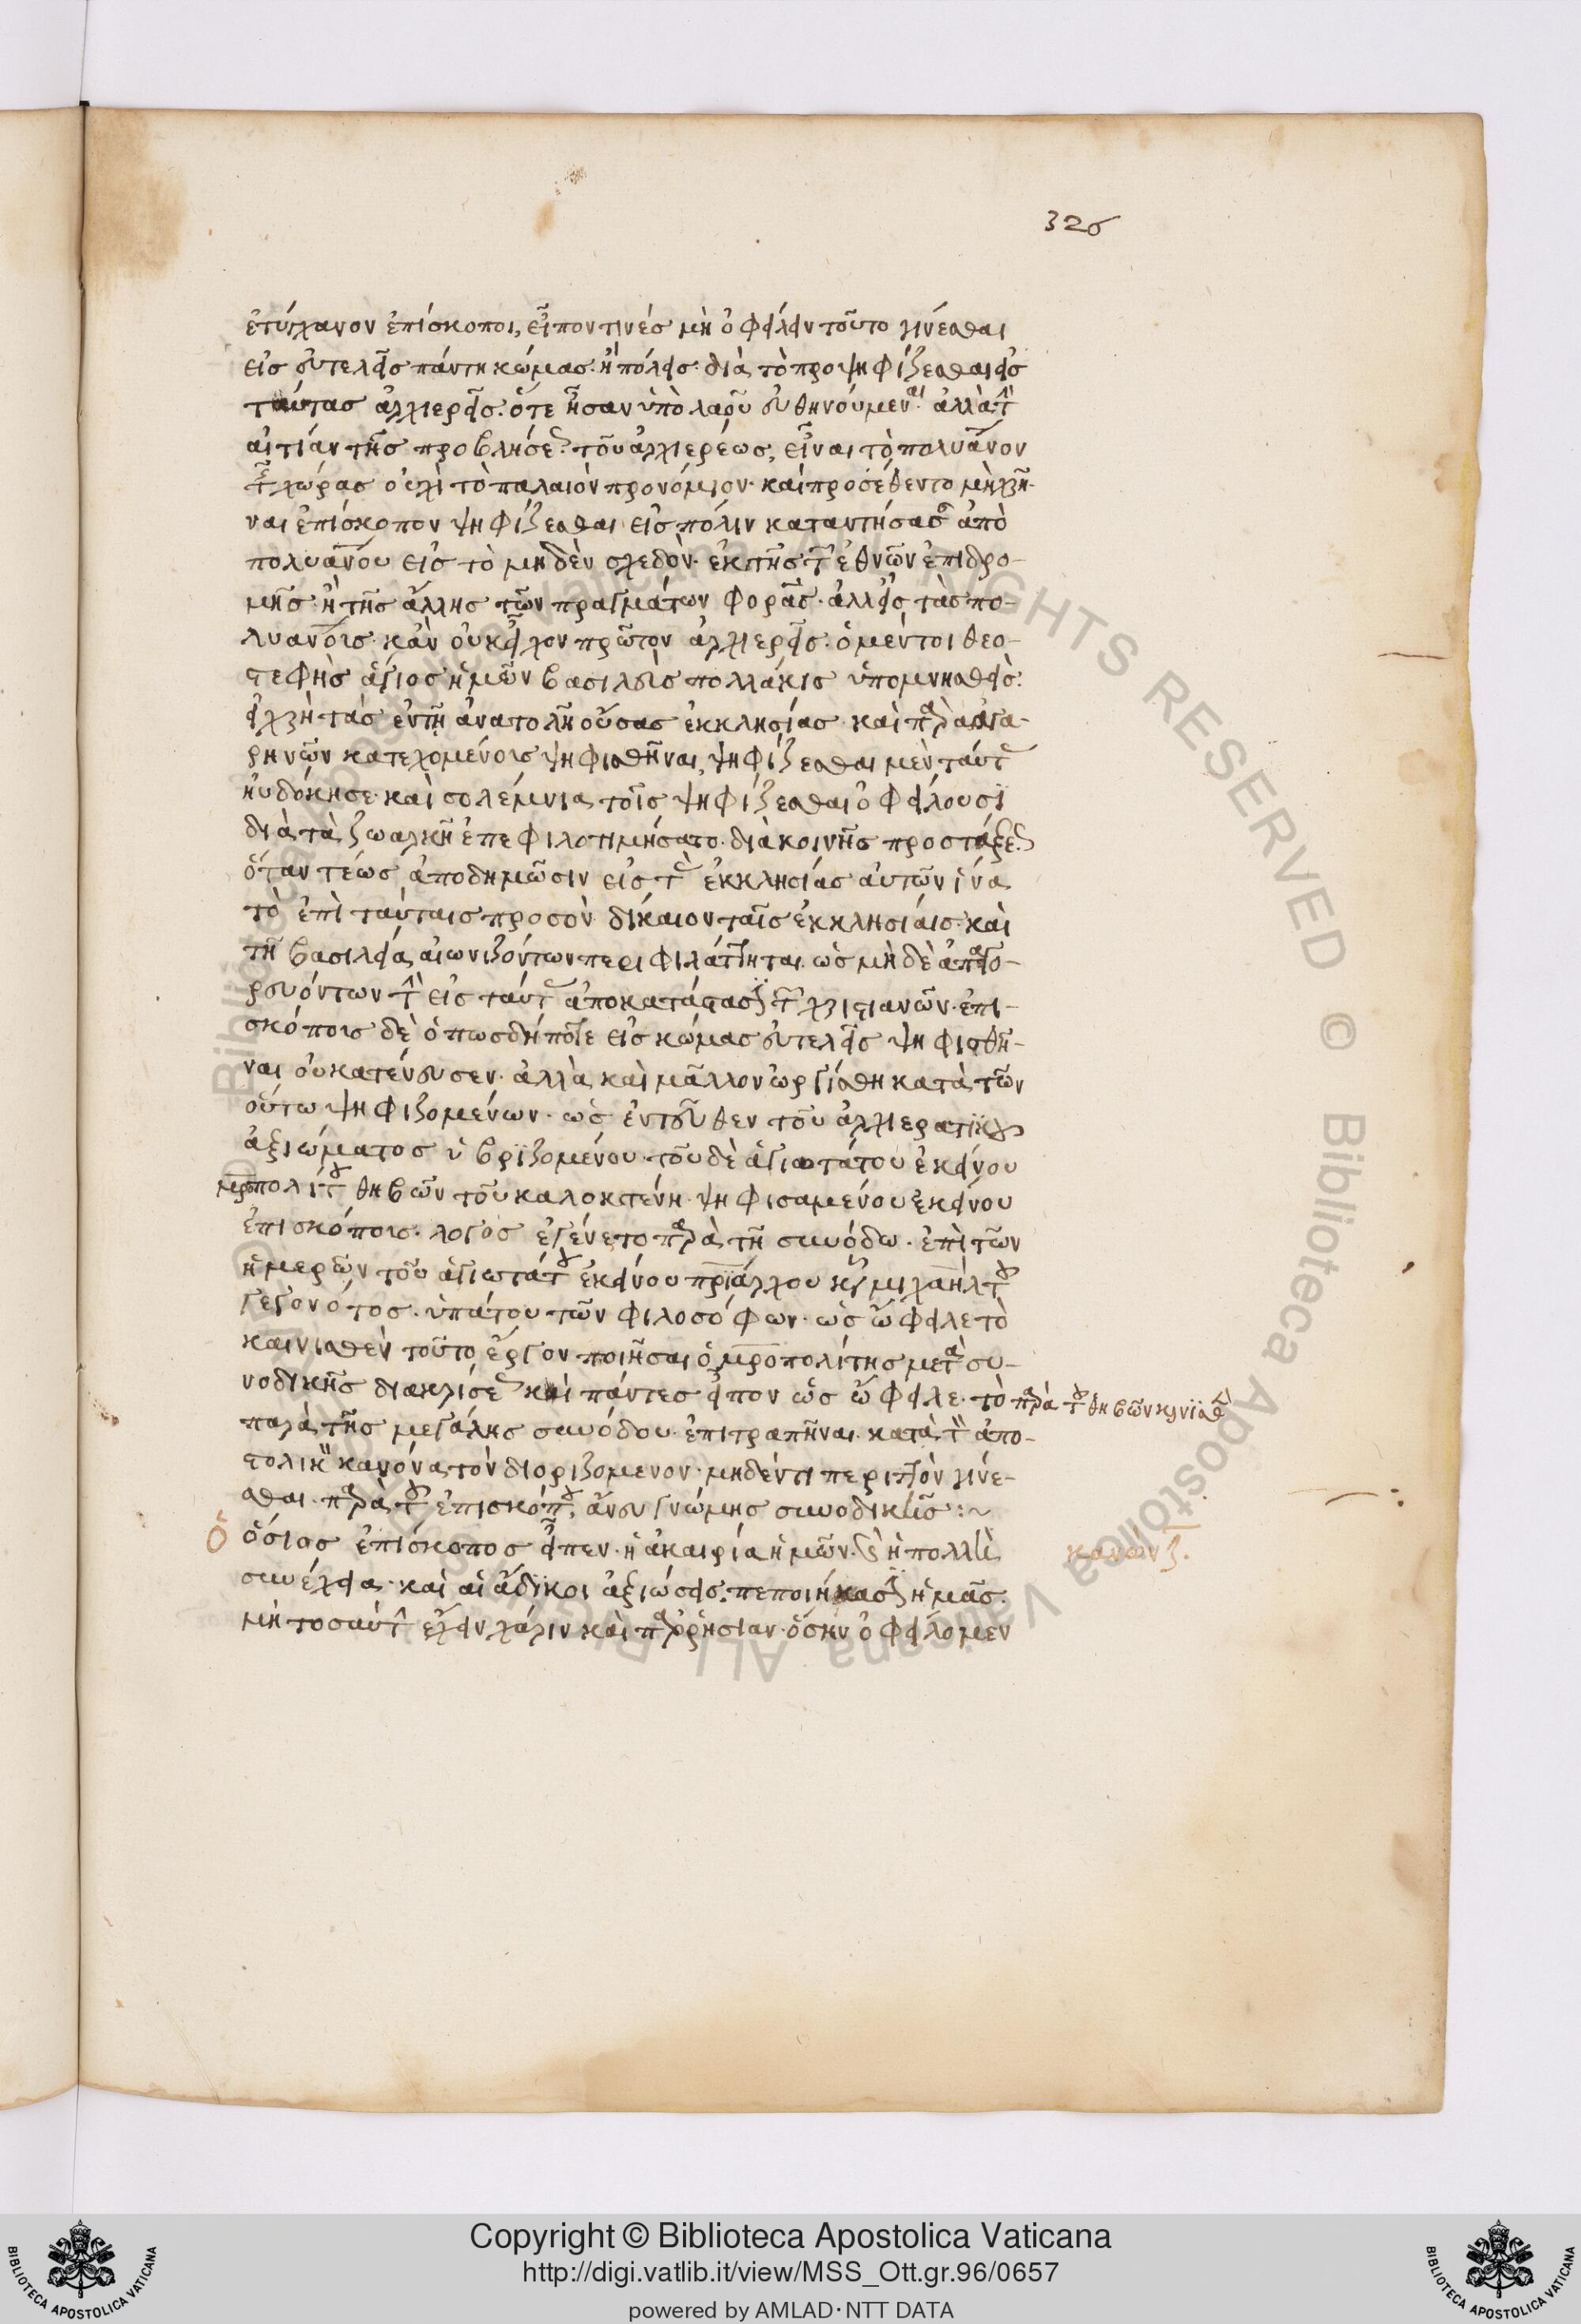 326
ἐτύγχανον ἐπίσκοποι, εἶπον τινές μὴ ὀφείλειν τοῦτο γίνεσθαι
εἰς εὐτελεῖς πάντη κώμας· ἢ πόλεις· διὰ τὸ προψηφίζεσθαι εἰς
ταύτας ἀρχιερεῖς· ὅτε ἦσαν ὑπὸ λαοῦ εὐθηνούμεναι· ἀλλὰ τὴν
αἰτίαν τῆς προβλήσεως τοῦ ἀρχιερέως, εἶναι τὸ πολυάνον
τῆς χώρας οὐχὶ τὸ παλαιὸν προνόμιον· καὶ προσέθεντο μὴ χρῆ-
ναι ἐπίσκοπον ψηφίζεσθαι εἰς πόλιν καταντήσασαν ἀπὸ
πολυάνου εἰς τὸ μηδὲν σχεδὸν· ἐκ τῆς τῶν ἐθνῶν ἐπιδρο-
μῆς· ἢ τῆς ἄλλης τῶν πραγμάτων φορᾶς· ἀλλ' εἰς τὰς πο-
λυάνους· κἂν οὐκ εἶχον πρῶτον ἀρχιερεῖς· ὁ μέντοι θεο-
στεφὴς ἅγιος ἡμῶν βασιλεὺς πολλάκις ὑπομνησθεὶς·
εἰ χρὴ τὰς ἐν τῇ ἀνατολῇ οὔσας ἐκκλησίας· καὶ παρὰ ἀγα-
ρηνῶν κατεχομένους ψηφισθῆναι, ψηφίζεσθαι μὲν ταύτας
ηὐδόκησε· καὶ σολέμνια τοῖς ψηφίζεσθαι ὀφείλουσι
διὰ τὰ ζωαρκῆ ἐπεφιλοτιμήσατο· διὰ κοινῆς προστάξεως
ὅταν τέως ἀποδημῶσιν εἰς τὰς ἐκκλησίας αὐτῶν ἵνα
τὸ ἐπὶ ταύταις προσὸν δίκαιον ταῖς ἐκκλησίαις· καὶ
τῇ βασιλείᾳ αἰωνιζόντων περιφυλάττηται· ὡς μὴ δὲ ἀπαγο-
ρευόντων τὴν εἰς ταύτας ἀποκατάστασιν τῶν χριστιανῶν· ἐπι-
σκόπους δὲ ὁπωσδήποτε εἰς κώμας εὐτελεῖς ψηφισθῆ-
ναι οὐ κατένευσεν· ἀλλὰ καὶ μᾶλλον ὠργίσθη κατὰ τῶν
οὕτω ψηφιζομένων· ὡς ἐντεῦθεν τοῦ ἀρχιερατικοῦ
ἀξιώματος ὑβριζομένου· τοῦ δὲ ἁγιωτάτου ἐκείνου
μροπολίτου θηβῶν τοῦ καλοκτένη· ψηφισαμένου ἐκείνου
ἐπισκόπους· λόγος ἐγένετο παρὰ τῇ συνόδω· ἐπὶ τῶν
ἡμερῶν τοῦ ἁγιωτάτου ἐκείνου πριάρχου κυροῦ μιχαὴλ τοῦ
γεγονότος· ὑπάτου τῶν φιλοσόφων· ὡς ὤφειλε τὸ
καινισθὲν τοῦτο ἔργον ποιῆσαι ὁ μροπολίτης μετὰ συ-
νοδικῆς διακρίσεως καὶ πάντες εἶπον ὡς ὤφειλε· τὸ παρὰ τοῦ θηβῶν καινισθὲν
παρὰ τῆς μεγάλης συνόδου· ἐπιτραπῆναι· κατὰ τὸν ἀπο-
στολικὸν κανόνα τὸν διοριζομενον· μηδέν τι περιττὸν γίνε-
σθαι· παρὰ τοῦ ἐπισκόπου, ἄνευ γνώμης συνοδικῆς:~
Ὁ ὅσιος ἐπίσκοπος εἶπεν· ἡ ἀκαιρία ἡμῶν· καὶ ἡ πολλὴ
κανὼν ζ.
συνέχεια· καὶ αἱ ἄδικοι ἀξιώσεις· πεποιήκασιν ἡμᾶς·
μὴ τοσαύτην ἔχειν χάριν καὶ παρρησίαν· ὅσην ὀφείλομεν
Copyright © Biblioteca Apostolica Vaticana
http://digi.vatlib.it/view/MSS_Ott.gr.96/0657
powered by AMLAD·NTT DATA
BIBLIOTECA APOSTOLICA VATICANA
BIBLIOTECA APOSTOLICA VATICANA